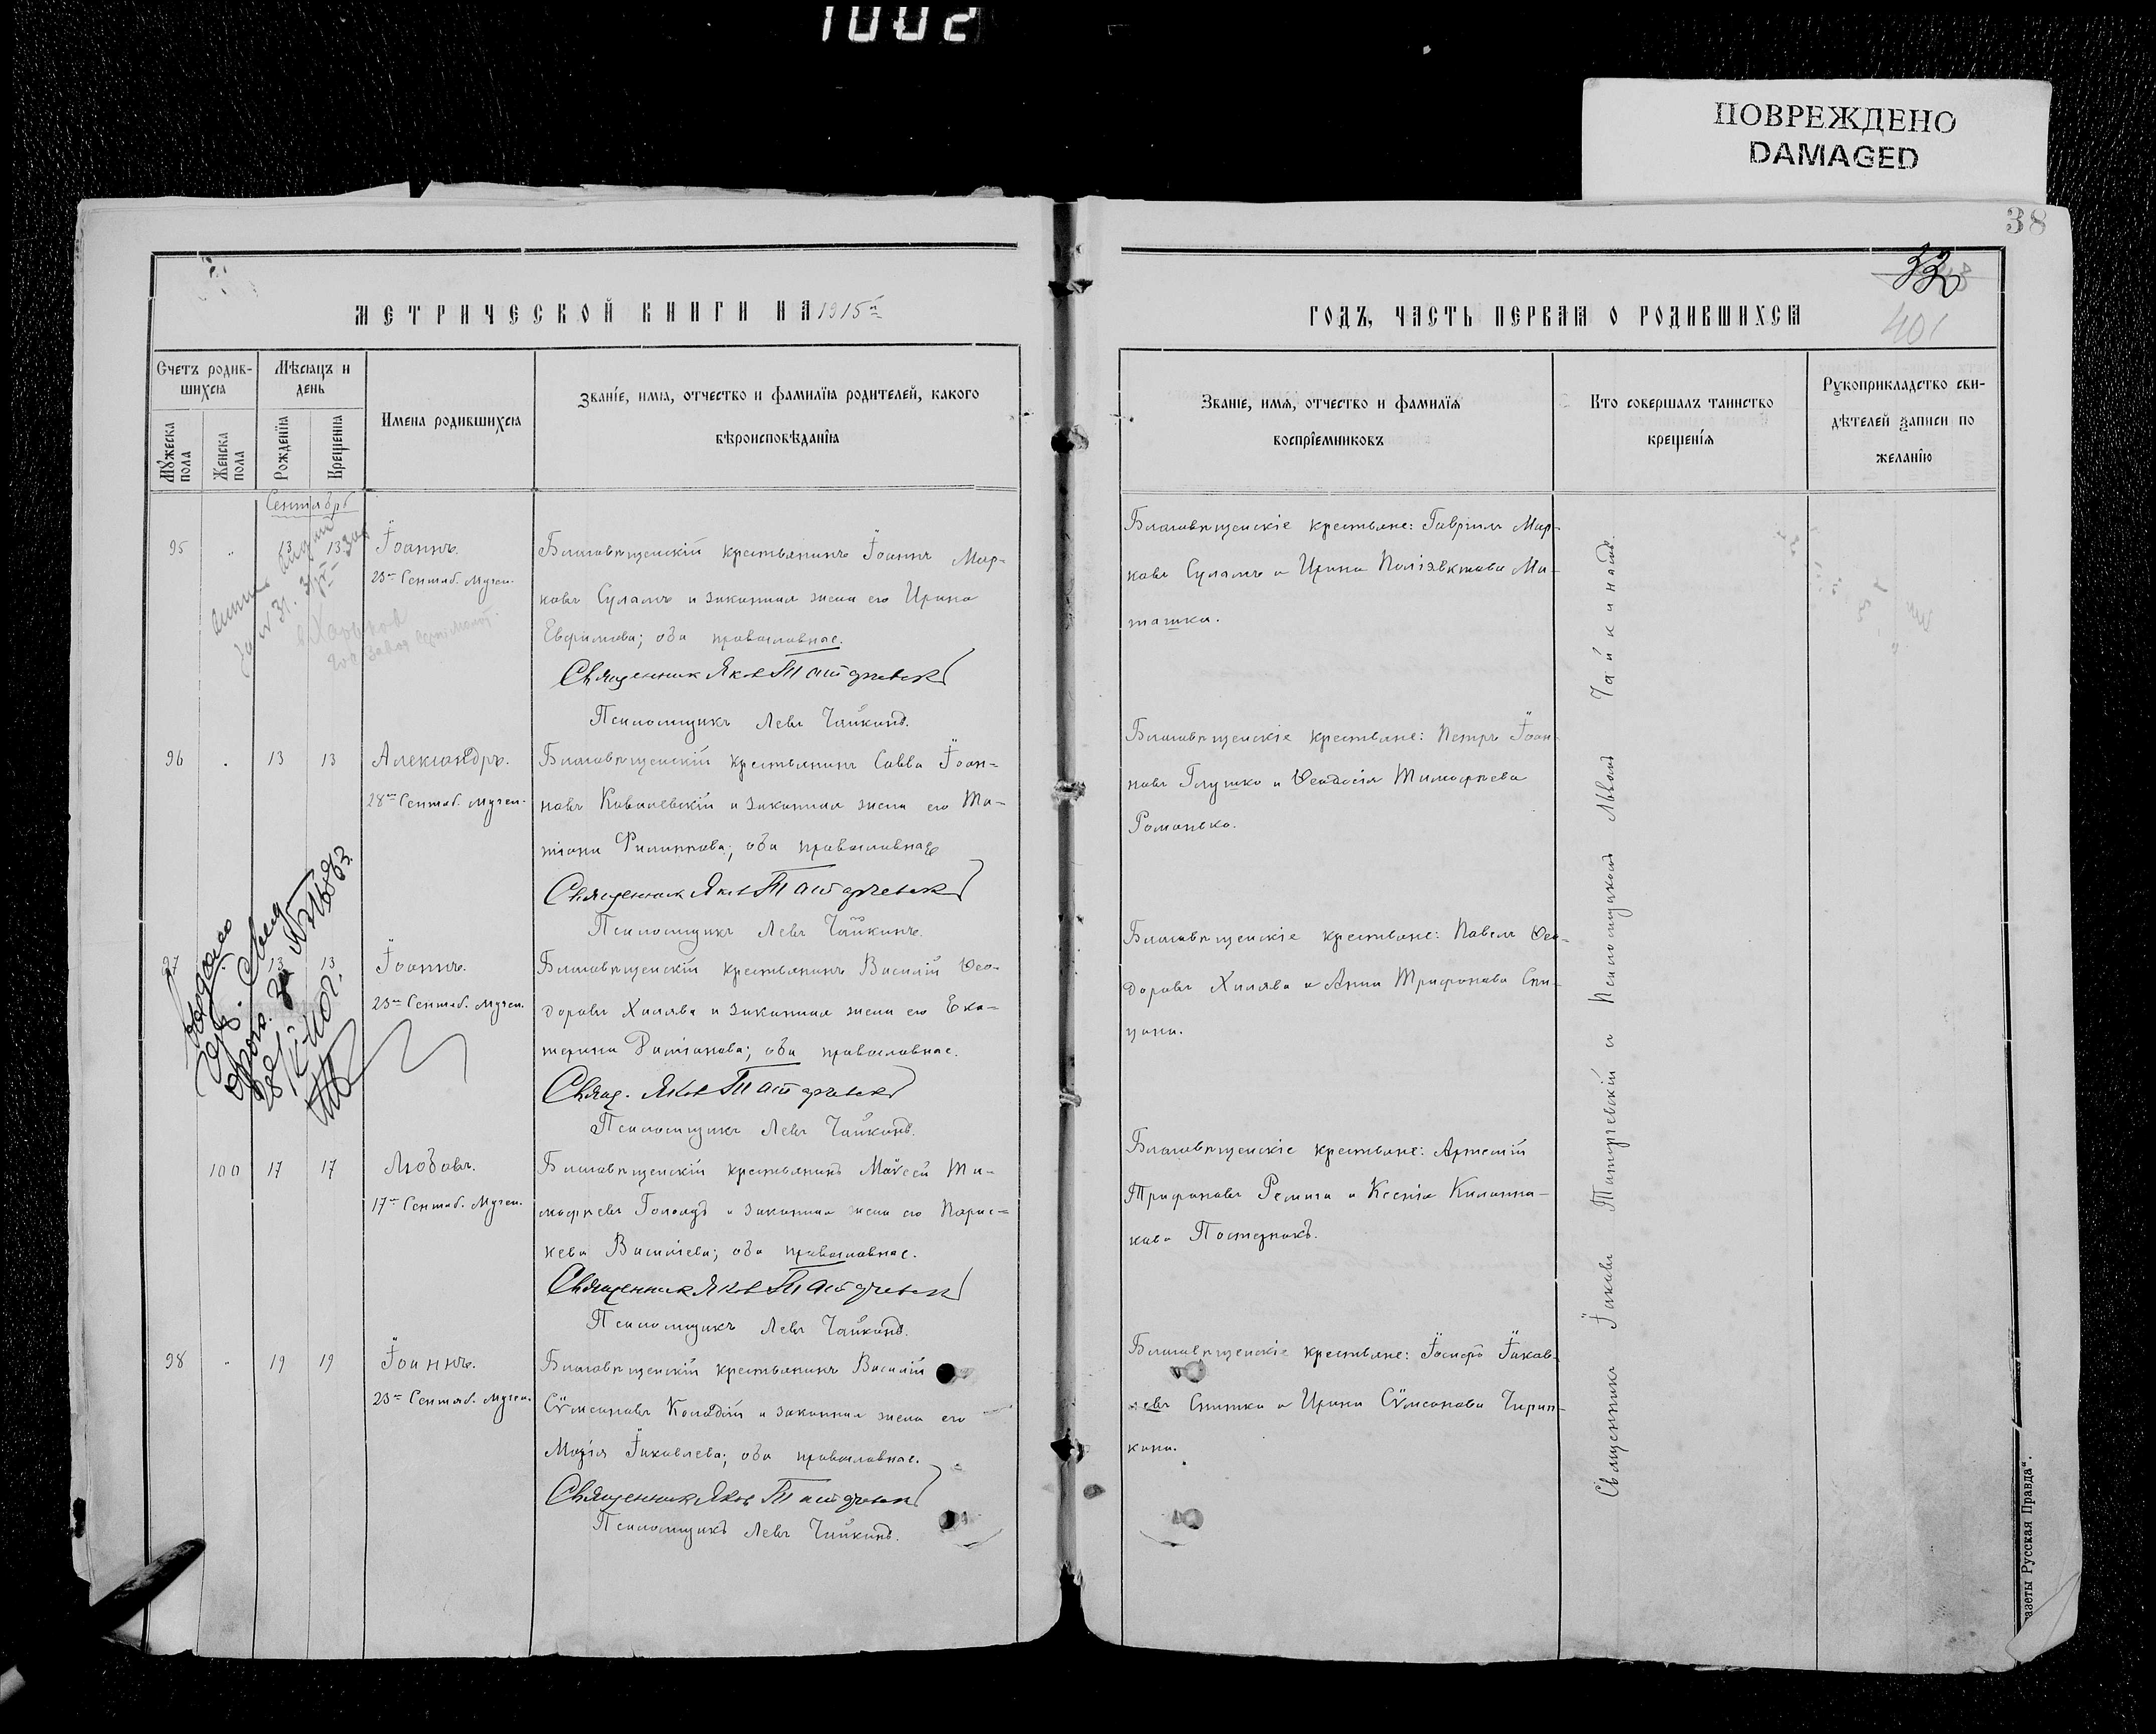 1002
ПОВРЕЖДЕНО
DAMAGED
38
32
401
МЕТРИЧЕСКОЙ КНИГИ НА 1915й
ГОДЪ, ЧАСТЬ ПЕРВАЯ О РОДИВШИХСЯ
Счетъ родив-
шихся
Мужеска пола
Женска пола
Мѣсяцъ и
день
Рожденїя
Крещенїя
Имена родившихся
Званїе, имя, отчество и фамилїя родителей, какого
вѣроисповѣданїя
Званїе, имя, отчество и фамилїя
воспрїемниковъ
Кто совершалъ таинство
крещенїя
Рукоприкладство сви-
дѣтелей записи по
желанїю
Сентябрь
95 " 13 13 Іоаннъ.
23го Сентяб. Мучен.
Благовѣщенскій крестьянинъ Іоаннъ Мар-
ковъ Суламъ и законная жена его Ирина
Евфимова; оба православные.
Священник Яков
Псаломщикъ Левъ Чайкинъ.
Благовѣщенскіе крестьяне: Гавріилъ Мар-
ковъ Суламъ и Ирина Поліэвктова Ма-
ташка.
96 " 13 13 Александръ.
28го Сентяб. мучен.
Благовѣщенскій крестьянинъ Савва Іоан-
новъ Ковалевскій и законная жена его Та-
тіана Филиппова; оба православные
Священник Яков
Псаломщикъ Левъ Чайкинъ.
Благовѣщенскіе крестьяне: Петръ Іоан-
новъ Глушко и Ѳеодосія Тимофѣева
Романько.
97 13 13 Іоаннъ.
23го Сентяб. Мучен.
Благовѣщенскій крестьянинъ Василій Ѳео-
доровъ Халява и законная жена его Ека-
терина; оба православные.
Свящ. Яков
Псаломщикъ Левъ Чайкинъ.
Благовѣщенскіе крестьяне: Павелъ Ѳео-
доровъ Халява и Анна Трифонова
100 17 17 Любовь.
17го Сентяб. Мучен.
Благовѣщенскій крестьянинъ Моѵсей Ти-
мофѣевъ и законная жена его Парас-
кева Васильева; оба православные.
Священник Яков
Псаломщикъ Левъ Чайкинъ.
Благовѣщенскіе крестьяне: Артемій
Трифоновъ и Ксенія
Пастернакъ.
98 " 19 19 Іоаннъ.
23го Сентяб. Мучен.
Благовѣщенскій крестьянинъ Василій
Сѵмеоновъ Колодій и законная жена его
Марія Іаковлева; оба православные.
Священник Яков
Псаломщикъ Левъ Чайкинъ.
Благовѣщенскіе крестьяне: Іосифъ Іаков-
левъ и Ирина Сѵмеонова
Священникъ Іаковъ и Псаломщикомъ Львомъ Чайкинымъ.
азеты Русская Правда“.